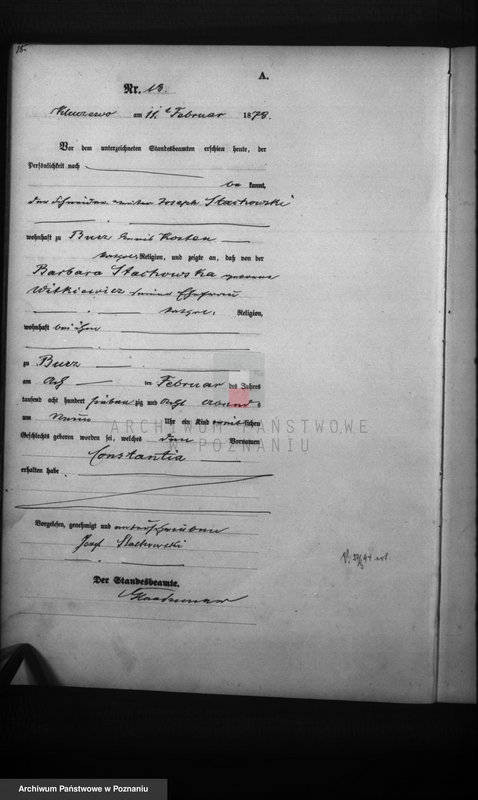 15.
A.
Nr. 13.
Kluczewo am 11. Februar 1878.
Vor dem unterzeichneten Standesbeamten erschien heute, der
Persönlichkeit nach
be kannt,
der Joseph Stachowski
wohnhaft zu Bucz Kreis Kosten
Religion, und zeigte an, daß von der
Barbara Stachowska geborene
Witkiewicz seiner Ehefrau
Religion,
wohnhaft bei ihm
zu Bucz
am ten Februar des Jahres
tausend acht hundert siebenzig und acht Abends
um neun Uhr ein Kind weiblichen
Geschlechts geboren worden sei, welches den Vornamen
Constantia
erhalten habe
Vorgelesen, genehmigt und unterschrieben
Josef Stachowski
Der Standesbeamte.
ARCHIWUM PAŃSTWOWE
W POZNANIU
Archiwum Państwowe w Poznaniu